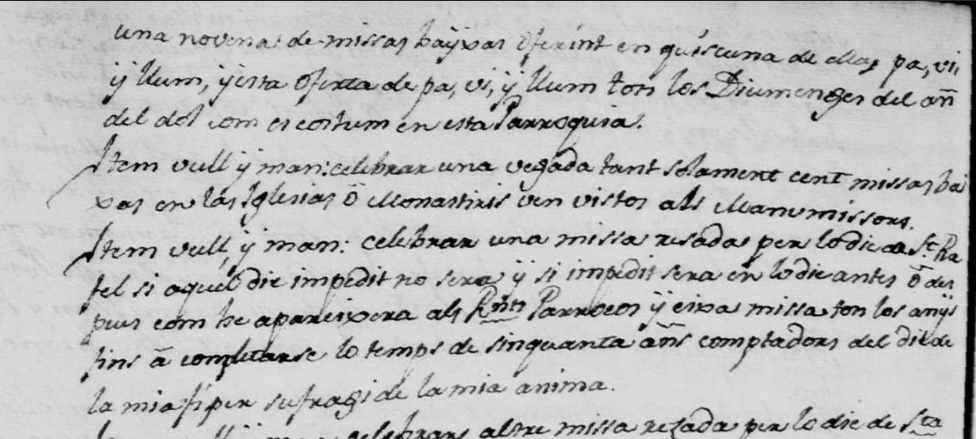 una novena de missas bayxas oferint en quiscuna de ellas pa, vi,
y llum, y esta oferta de pa, vi, y llum tots los Diumenges del añ
del dol com es costum en esta Parroquia.
Item vull y man: celebrar una vegada tant solament cent missas bai
xas en las Iglesias ô Monastirs ven vistos als Manumissors.
Item vull, y man: celebrar una missa resada per lo die a St. Ra
fel si aquel die impedit no sera y si impedit sera en lo die antes ô des
pues com be apareixera als Rnts Parrocos y eixa missa tots los anys
fins â completarse lo temps de sinquanta añs comptadors del die de
la mia fi per sufragi de la mia anima.
celebrar altre missa rezada per lo die de Sta